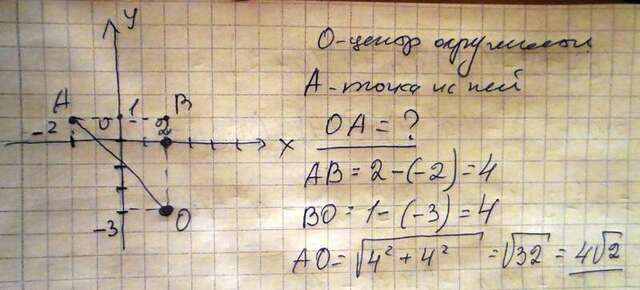 y
A
B
0
1
-2
2
x
-3
O
O-центр окружности
A-точка на ней
OA = ?
AB = 2 - (-2) = 4
BO = 1 - (-3) = 4
AO = √4² + 4² = √32 = 4√2